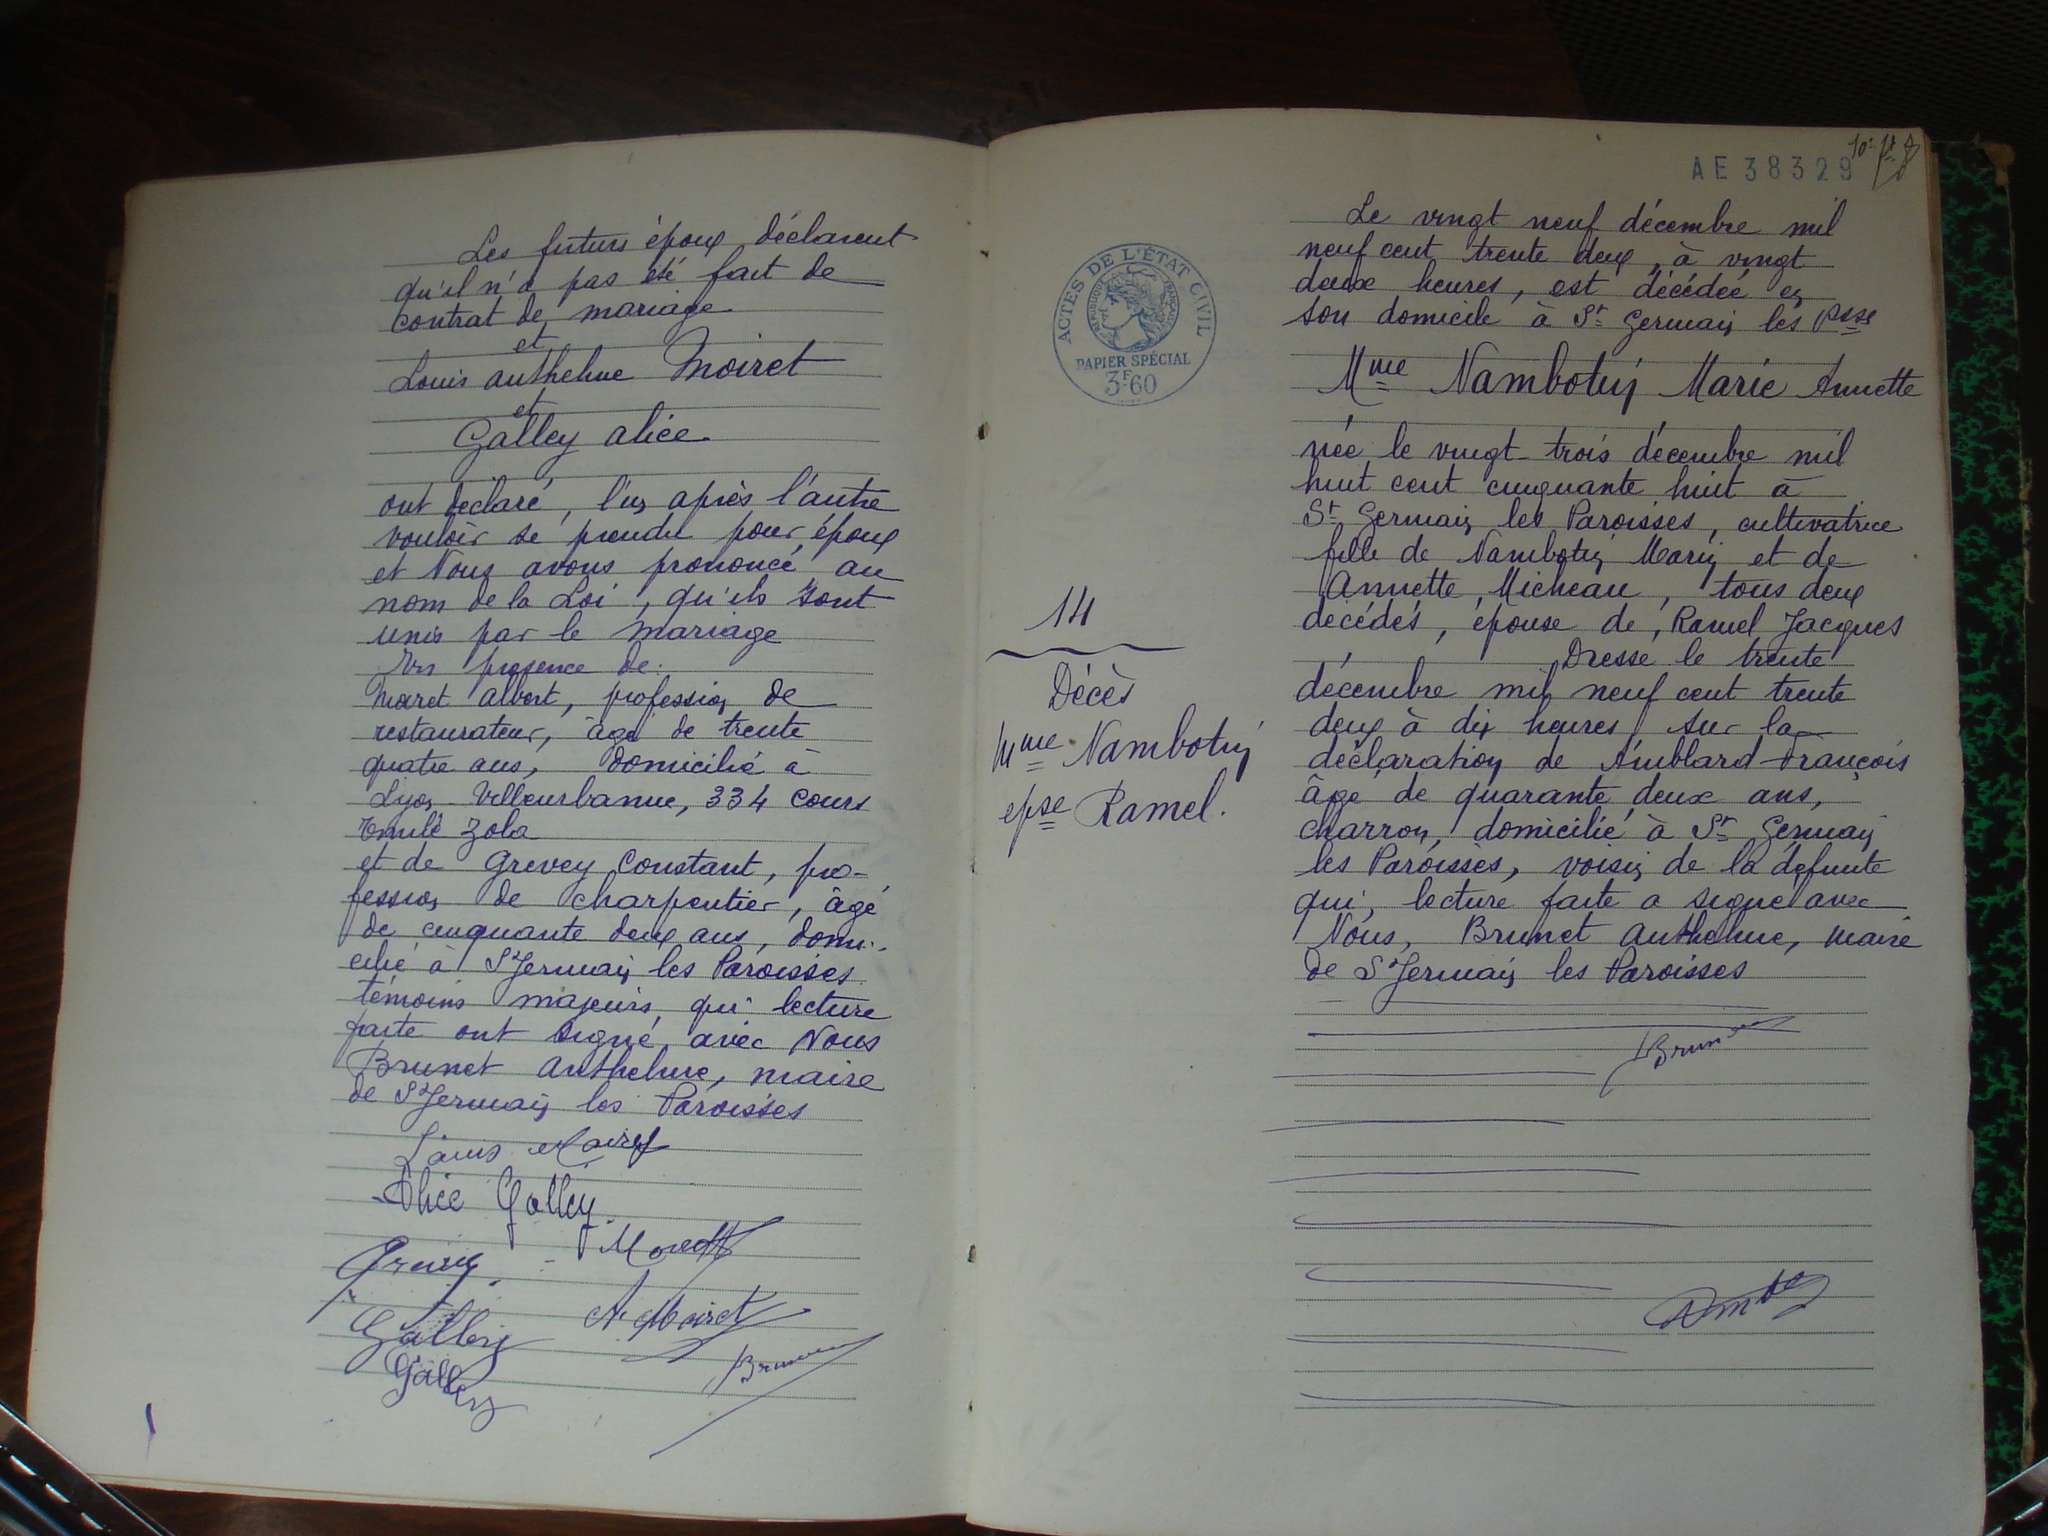 Les futurs époux déclarent
qu'il n'a pas été fait de
contrat de mariage
et
Louis Anthelme Moiret
et
Galley Alice
ont déclaré, l'un après l'autre
vouloir se prendre pour époux
et Nous avons prononcé au
nom de la Loi, qu'ils sont
unis par le mariage
En présence de
Maret Albert, profession de
restaurateur, âgé de trente
quatre ans, domicilié à
Lyon Villeurbanne, 334 Cours
Emile Zola
et de Grevey Constant, pro-
fession de charpentier, âgé
de cinquante deux ans, domi-
cilié à St Germain les Paroisses
témoins majeurs, qui lecture
faite ont signé avec Nous
Brunet Anthelme, maire
de St Germain les Paroisses
Louis Moiret
Alice Galley
Grevey
A. Moiret
Galley
Brunet
Galley
AE 38329
ACTES DE L'ÉTAT CIVIL
RÉPUBLIQUE FRANÇAISE
PAPIER SPÉCIAL
3F60
14
Décès
Mme Nambotin
epse Ramel.
Le vingt neuf décembre mil
neuf cent trente deux, à vingt
deux heures, est décédée en
son domicile à St Germain les Psses
Mme Nambotin Marie Annette
née le vingt-trois décembre mil
huit cent cinquante huit à
St Germain les Paroisses, cultivatrice
fille de Nambotin Marin et de
Annette Micheau, tous deux
décédés, épouse de, Ramel Jacques
Dressé le trente
décembre mil neuf cent trente
deux à dix heures, sur la
déclaration de Amblard François
âgé de quarante deux ans,
charron, domicilié à St Germain
les Paroisses, voisin de la défunte
qui, lecture faite a signé avec
Nous, Brunet Anthelme, maire
de St Germain les Paroisses
Brunet